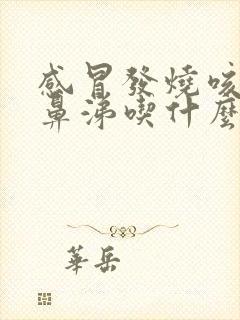 感冒發燒咳
鼻涕喫什麼
華岳